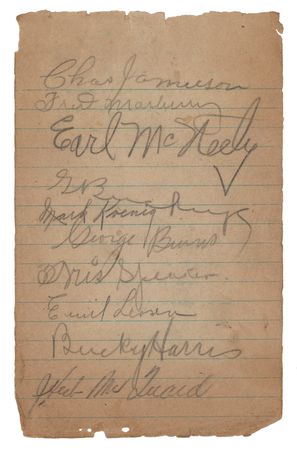 Chas Jamieson
Fred Marberry
Earl McNeely
Mark Koenig
George Burns
Tris Speaker
Emil Levsen
Bucky Harris
Herb McQuaid